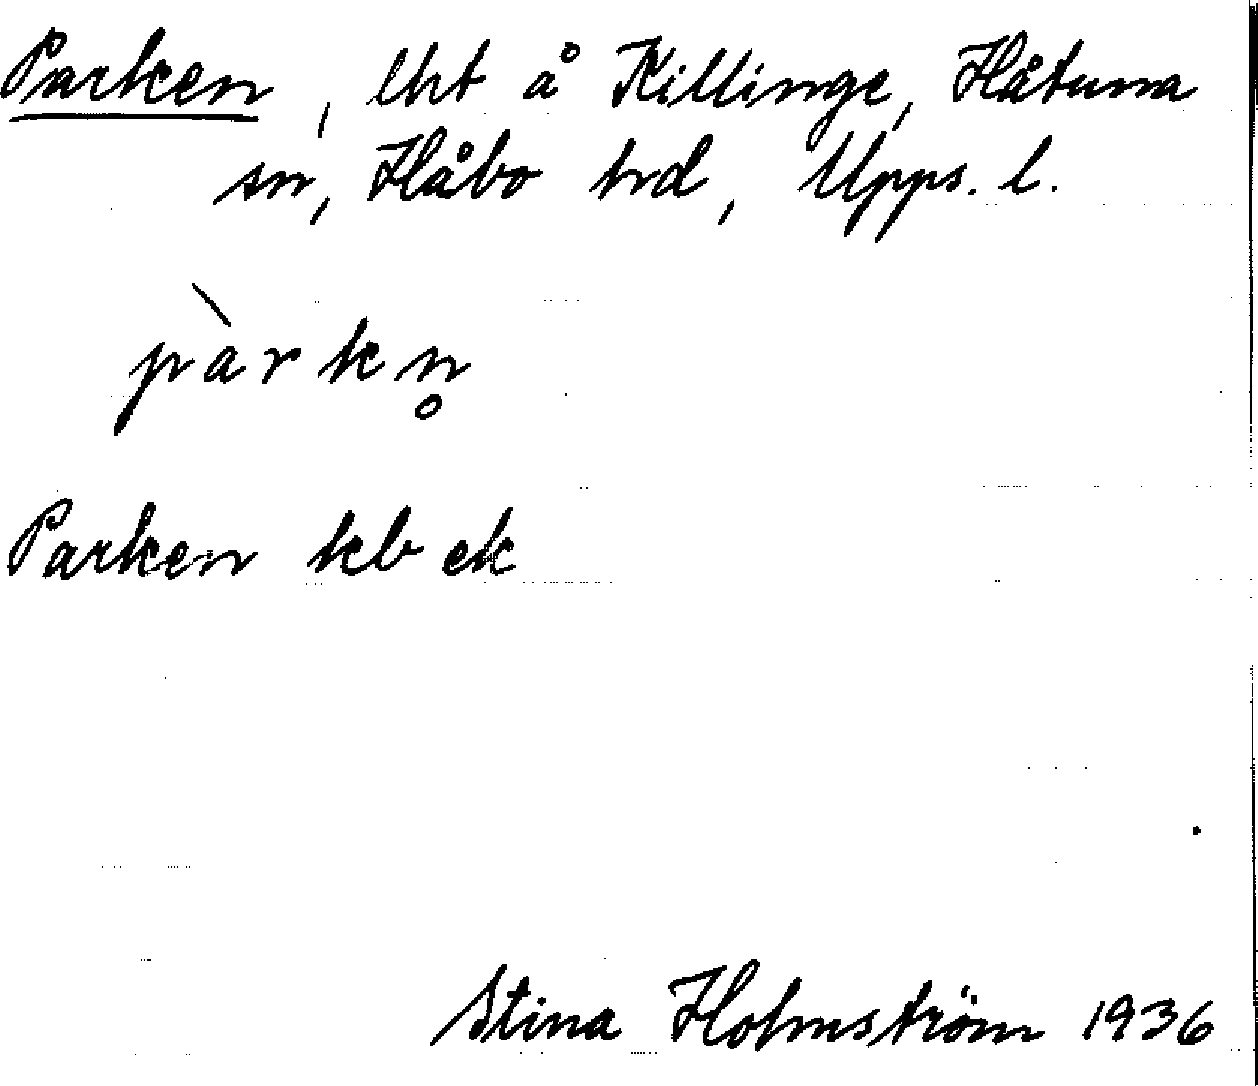 Parken, lht å Killinge, Håtuna
sn, Håbo hd, Upps. l.
pàrkn̥
Parken kb ek
Stina Holmström 1936